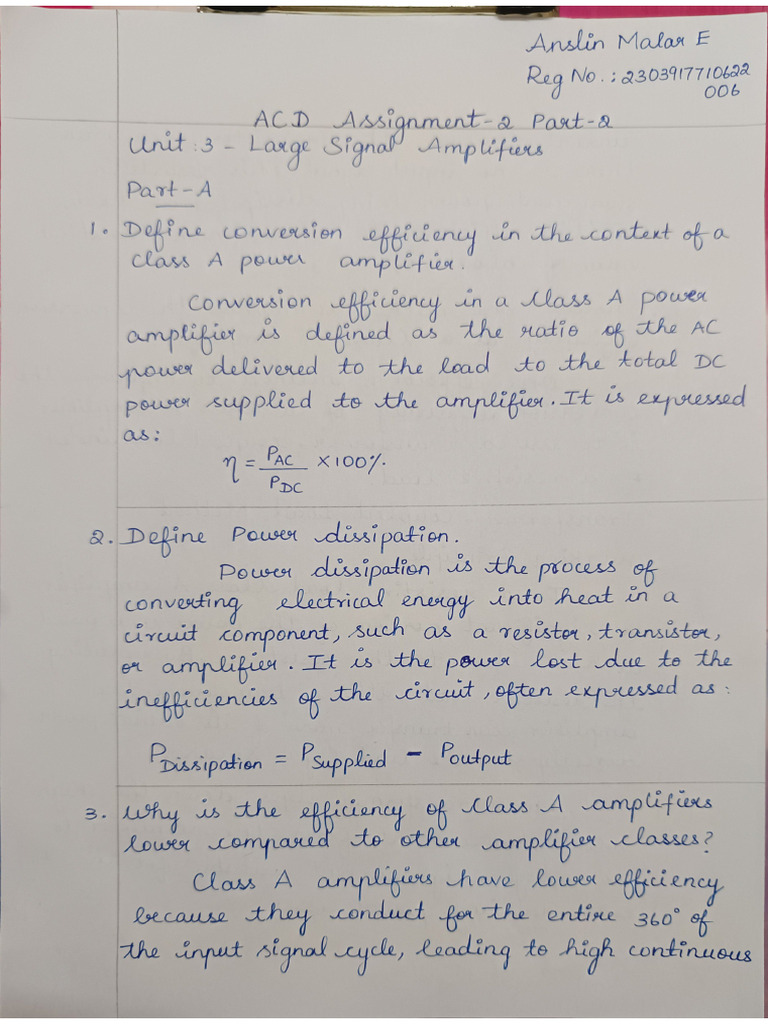 Anslin Malar E
Reg No.: 2303917710622
006
ACD Assignment-2 Part-2
Unit: 3 - Large Signal Amplifiers
Part-A
1. Define conversion efficiency in the context of a
Class A power amplifier.
Conversion efficiency in a Class A power
amplifier is defined as the ratio of the AC
power delivered to the load to the total DC
power supplied to the amplifier. It is expressed
as:
η = P_AC / P_DC × 100%.
2. Define Power dissipation.
Power dissipation is the process of
converting electrical energy into heat in a
circuit component, such as a resistor, transistor,
or amplifier. It is the power lost due to the
inefficiencies of the circuit, often expressed as:
P_Dissipation = P_Supplied - P_output
3. Why is the efficiency of Class A amplifiers
lower compared to other amplifier classes?
Class A amplifiers have lower efficiency
because they conduct for the entire 360° of
the input signal cycle, leading to high continuous